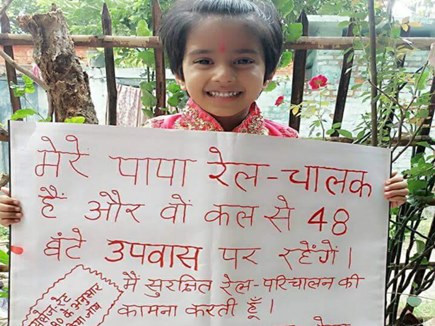 मेरे पापा रेल-चालक
हैं और वों कल से 48
घंटे उपवास पर रहेंगे।
मैं सुरक्षित रेल-परिचालन की
कामना करती हूँ।
के अनुसार